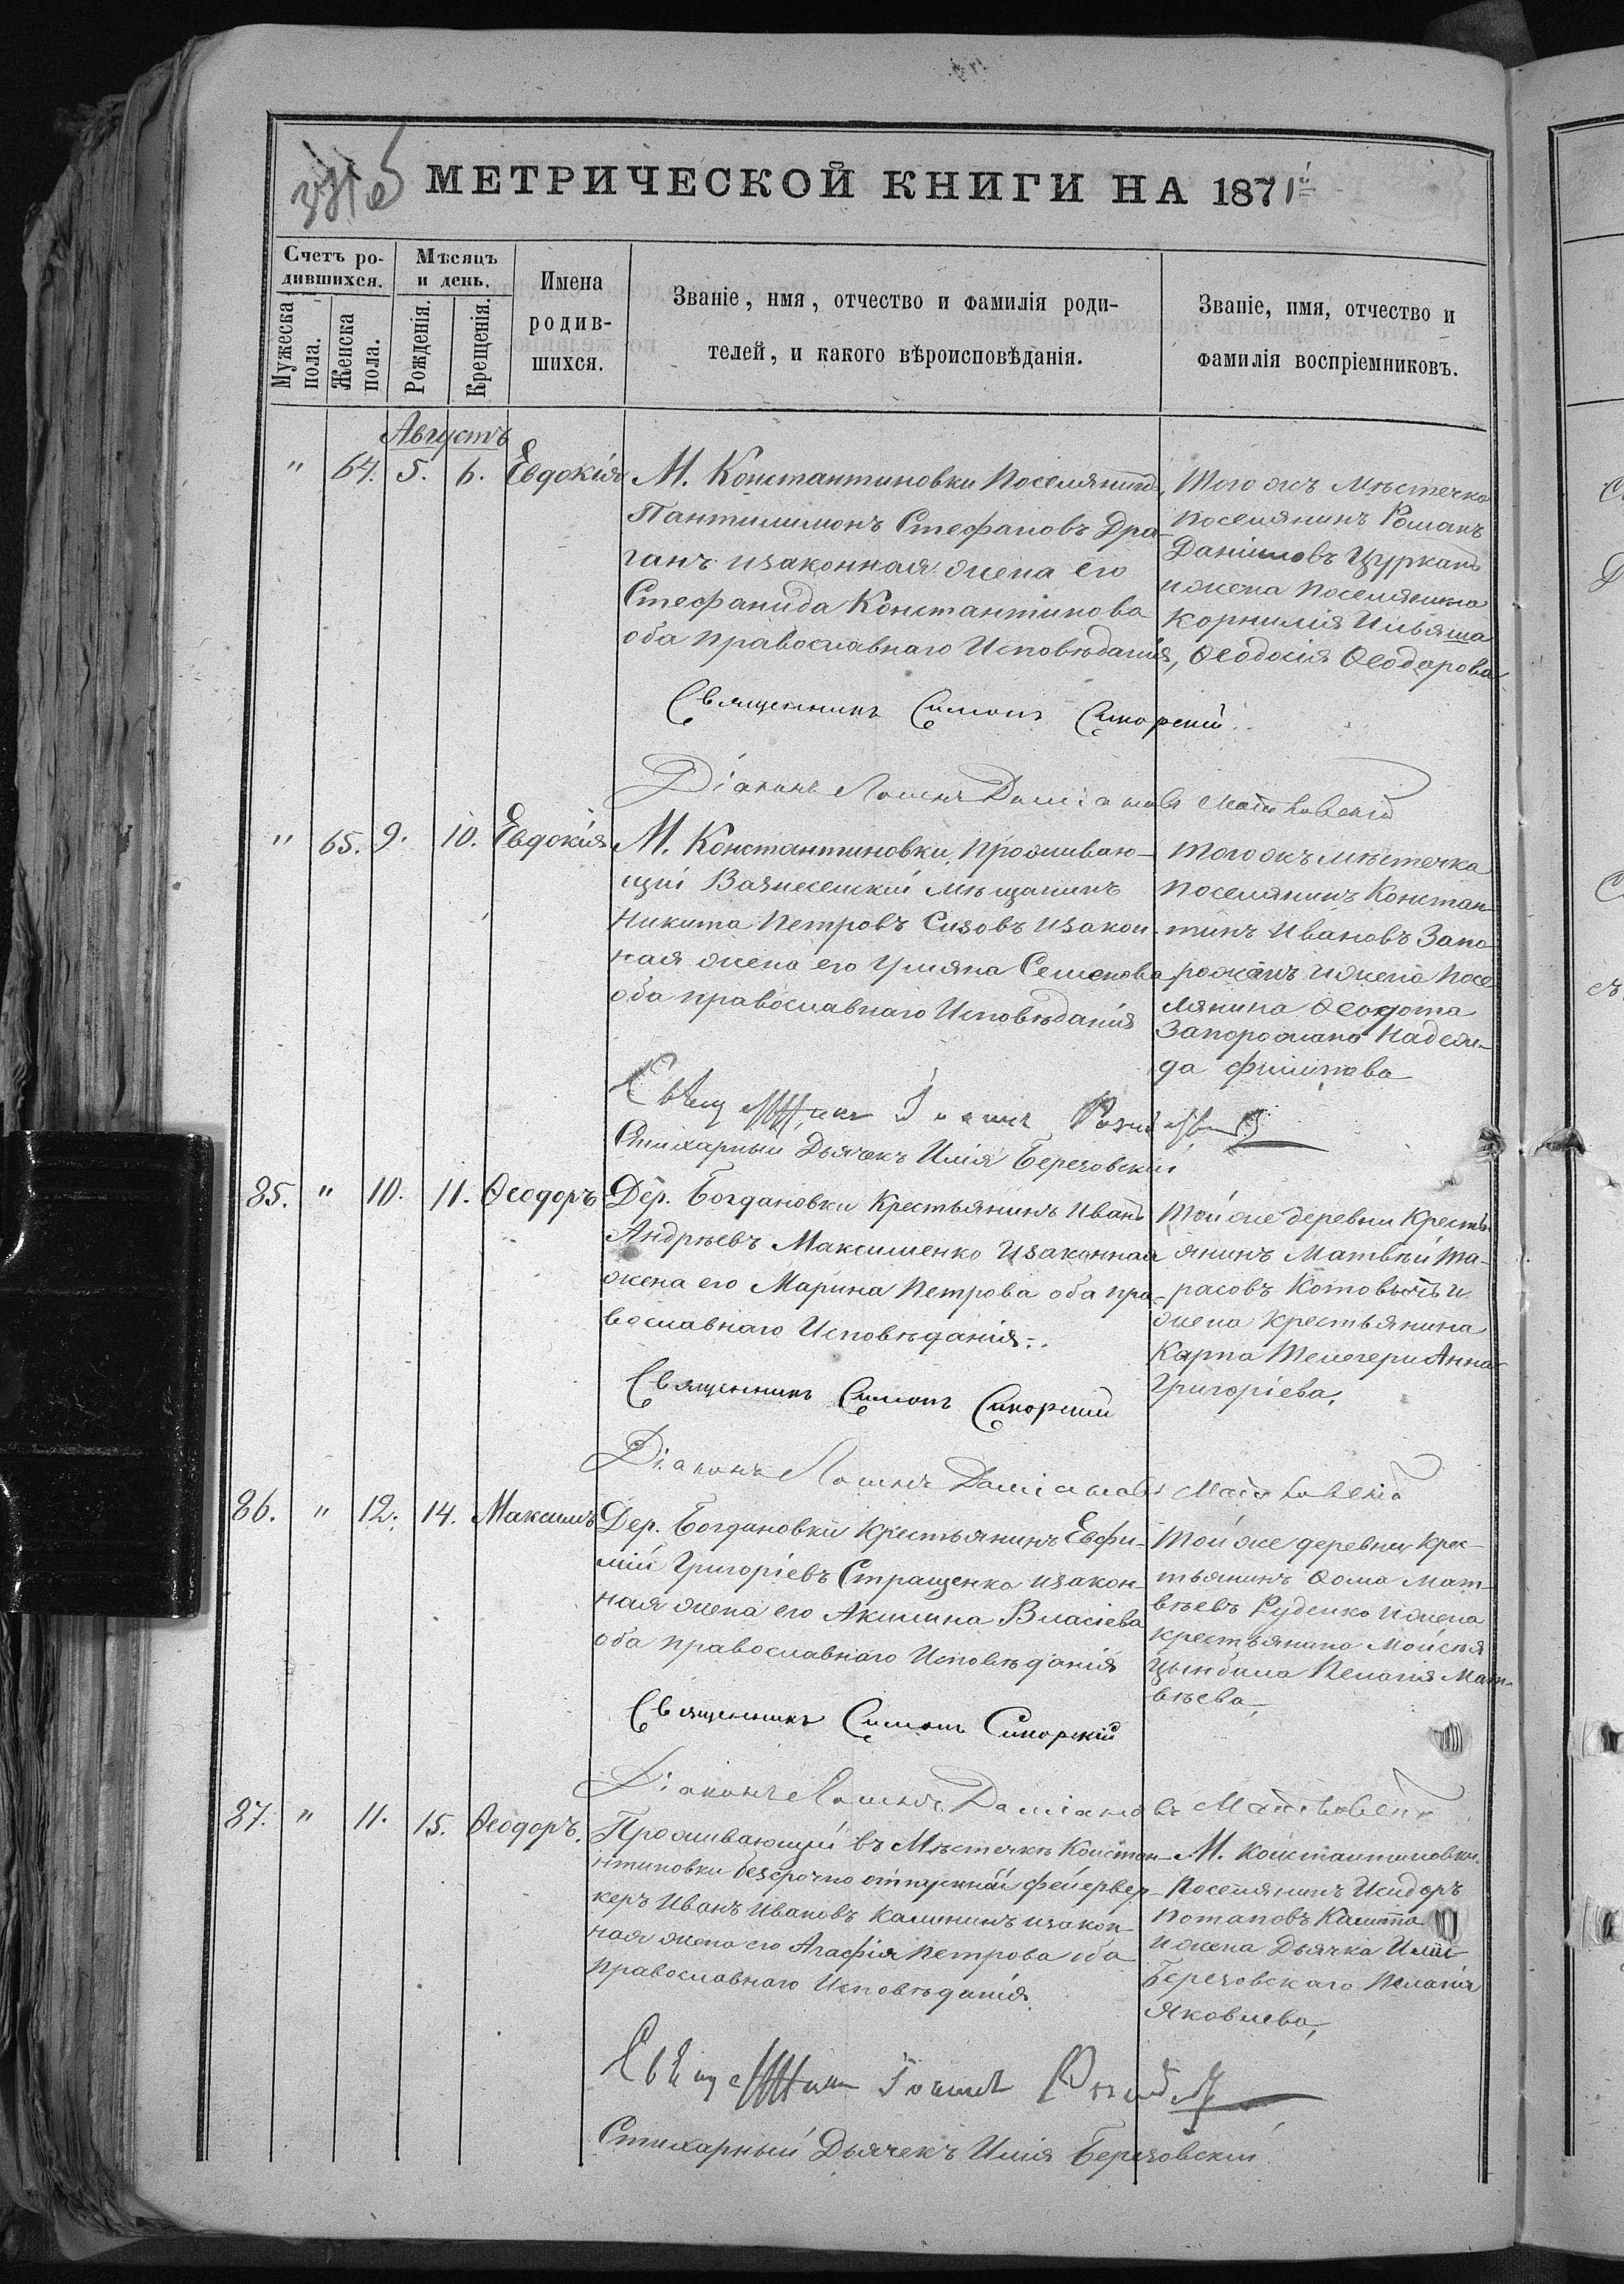 МЕТРИЧЕСКОЙ КНИГИ НА 1871й
Счетъ ро-
дившихся.
Мужеска пола.
Женска пола.
Мѣсяцъ
и день.
Рожденія.
Крещенія.
Имена
родив-
шихся.
Званіе, имя, отчество и фамилія роди-
телей, и какого вѣроисповѣданія.
Званіе, имя, отчество и
фамилія воспріемниковъ.
Августъ
" 64. 5. 6. Евдокія
М. Константиновки Поселянинъ
Пантилимонъ Стефановъ Дра-
ганъ изаконная жена его
Стефанида Константинова
оба Православнаго Исповѣданія,
Того жъ Мѣстечка
Поселянинъ Романъ
Даниловъ Цурканъ
и жена Поселянина
Корнилія Ильяша
Ѳеодосія Ѳеодорова
Священникъ Симонъ Сикорскій
Діаконъ Даміановъ
" 65. 9. 10. Евдокія
М. Константиновки, Прожиаваю-
щій Вазнесенскій Мѣщанинъ
Никита Петровъ Сизовъ изакон-
ная жена его Уліяна Семенова
оба православнаго Исповѣданія
Того жъ мѣстечка
Поселянинъ Констан-
тинъ Ивановъ Запо-
рожанъ и жена Посе-
лянина Ѳеодота
Запорожана Надеж-
да Филипова
Іоаннъ
Стихарный Дьячекъ Илія Березовскій
85. " 10. 11. Ѳеодоръ
Дер. Богдановки Крестьянинъ Иванъ
Андрѣевъ Максименко изаконная
жена его Марина Петрова оба пра-
вославнаго Исповѣданія.
Той же деревни Кресть-
янинъ Матвѣй Та-
расовъ и
жена Крестьянина
Карпа Телегери Анна
Григоріева.
Священникъ Симонъ Сикорскій
Діаконъ Даміановъ
86. " 12. 14. Максимъ
Дер. Богдановки Крестьянинъ Евфи-
мій Григоріевъ Стращенко изакон-
ная жена его Акилина Власіева
оба православнаго Исповѣданія
Той же деревни Крес-
тьянинъ Ѳома Мат-
вѣевъ Руденко и жена
крестьянина Мойсея
Цымбала Пелагія Мат-
вѣева
Священникъ Симонъ Сикорскій
Діаконъ Даміановъ
87. " 11. 15. Ѳеодоръ.
Проживающій въ Мѣстечкѣ Констан-
нтиновки безсрочно отпускной фейервер-
керъ Иванъ Ивановъ Калининъ изакон-
ная жена его Агафія Петрова оба
православнаго Исповѣданія.
М. Константиновки.
Поселянинъ Исидоръ
Потаповъ
и жена Дьячка Иліи
Березовскаго Пелагія
Яковлева,
Іоаннъ
Стихарный Дьячекъ Илія Березовскій